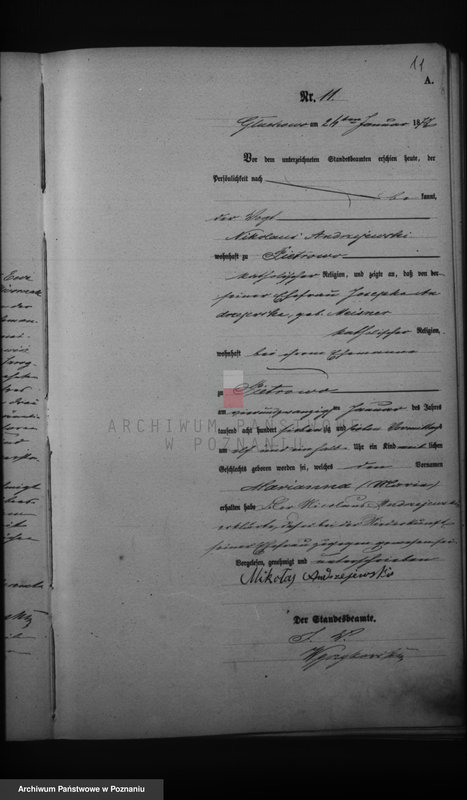 11
A.
Nr. 11.
am 24ten Januar 187
Vor dem unterzeichneten Standesbeamten erschien heute, der
Persönlichkeit nach
be kannt,
der Vogt
Nikolaus Andrzejewski
wohnhaft zu Pietrowo
katholischer Religion, und zeigte an, daß von der
seiner Ehefrau Josepha An
drzejewska, geb. Meisner
katholischer Religion,
wohnhaft bei ihrem Ehemanne
zu Pietrowo
am vierundzwanzigten Januar des Jahres
tausend acht hundert siebenzig und Vormittags
um elf und ein halb Uhr ein Kind weiblichen
Geschlechts geboren worden sei, welches den Vornamen
Marianna (Maria)
erhalten habe Der Nicolaus Andrzejewski
erklärte, daß er bei der Niederkunft
seiner Ehefrau zugegen gewesen sei.
Vorgelesen, genehmigt und unterschrieben
Mikołaj Andrzejewski
Der Standesbeamte.
ARCHIWUM PAŃSTWOWE
W POZNANIU
Archiwum Państwowe w Poznaniu